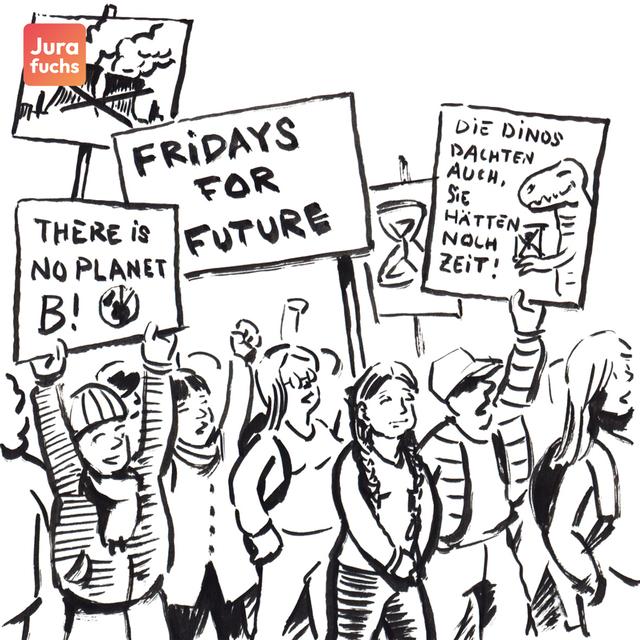 Jura
fuchs
FRIDAYS
FOR
FUTURE
THERE is
NO PLANET
B!
DIE DINOS
DACHTEN
AUCH,
SIE
HÄTTEN
NOCH
ZEIT!